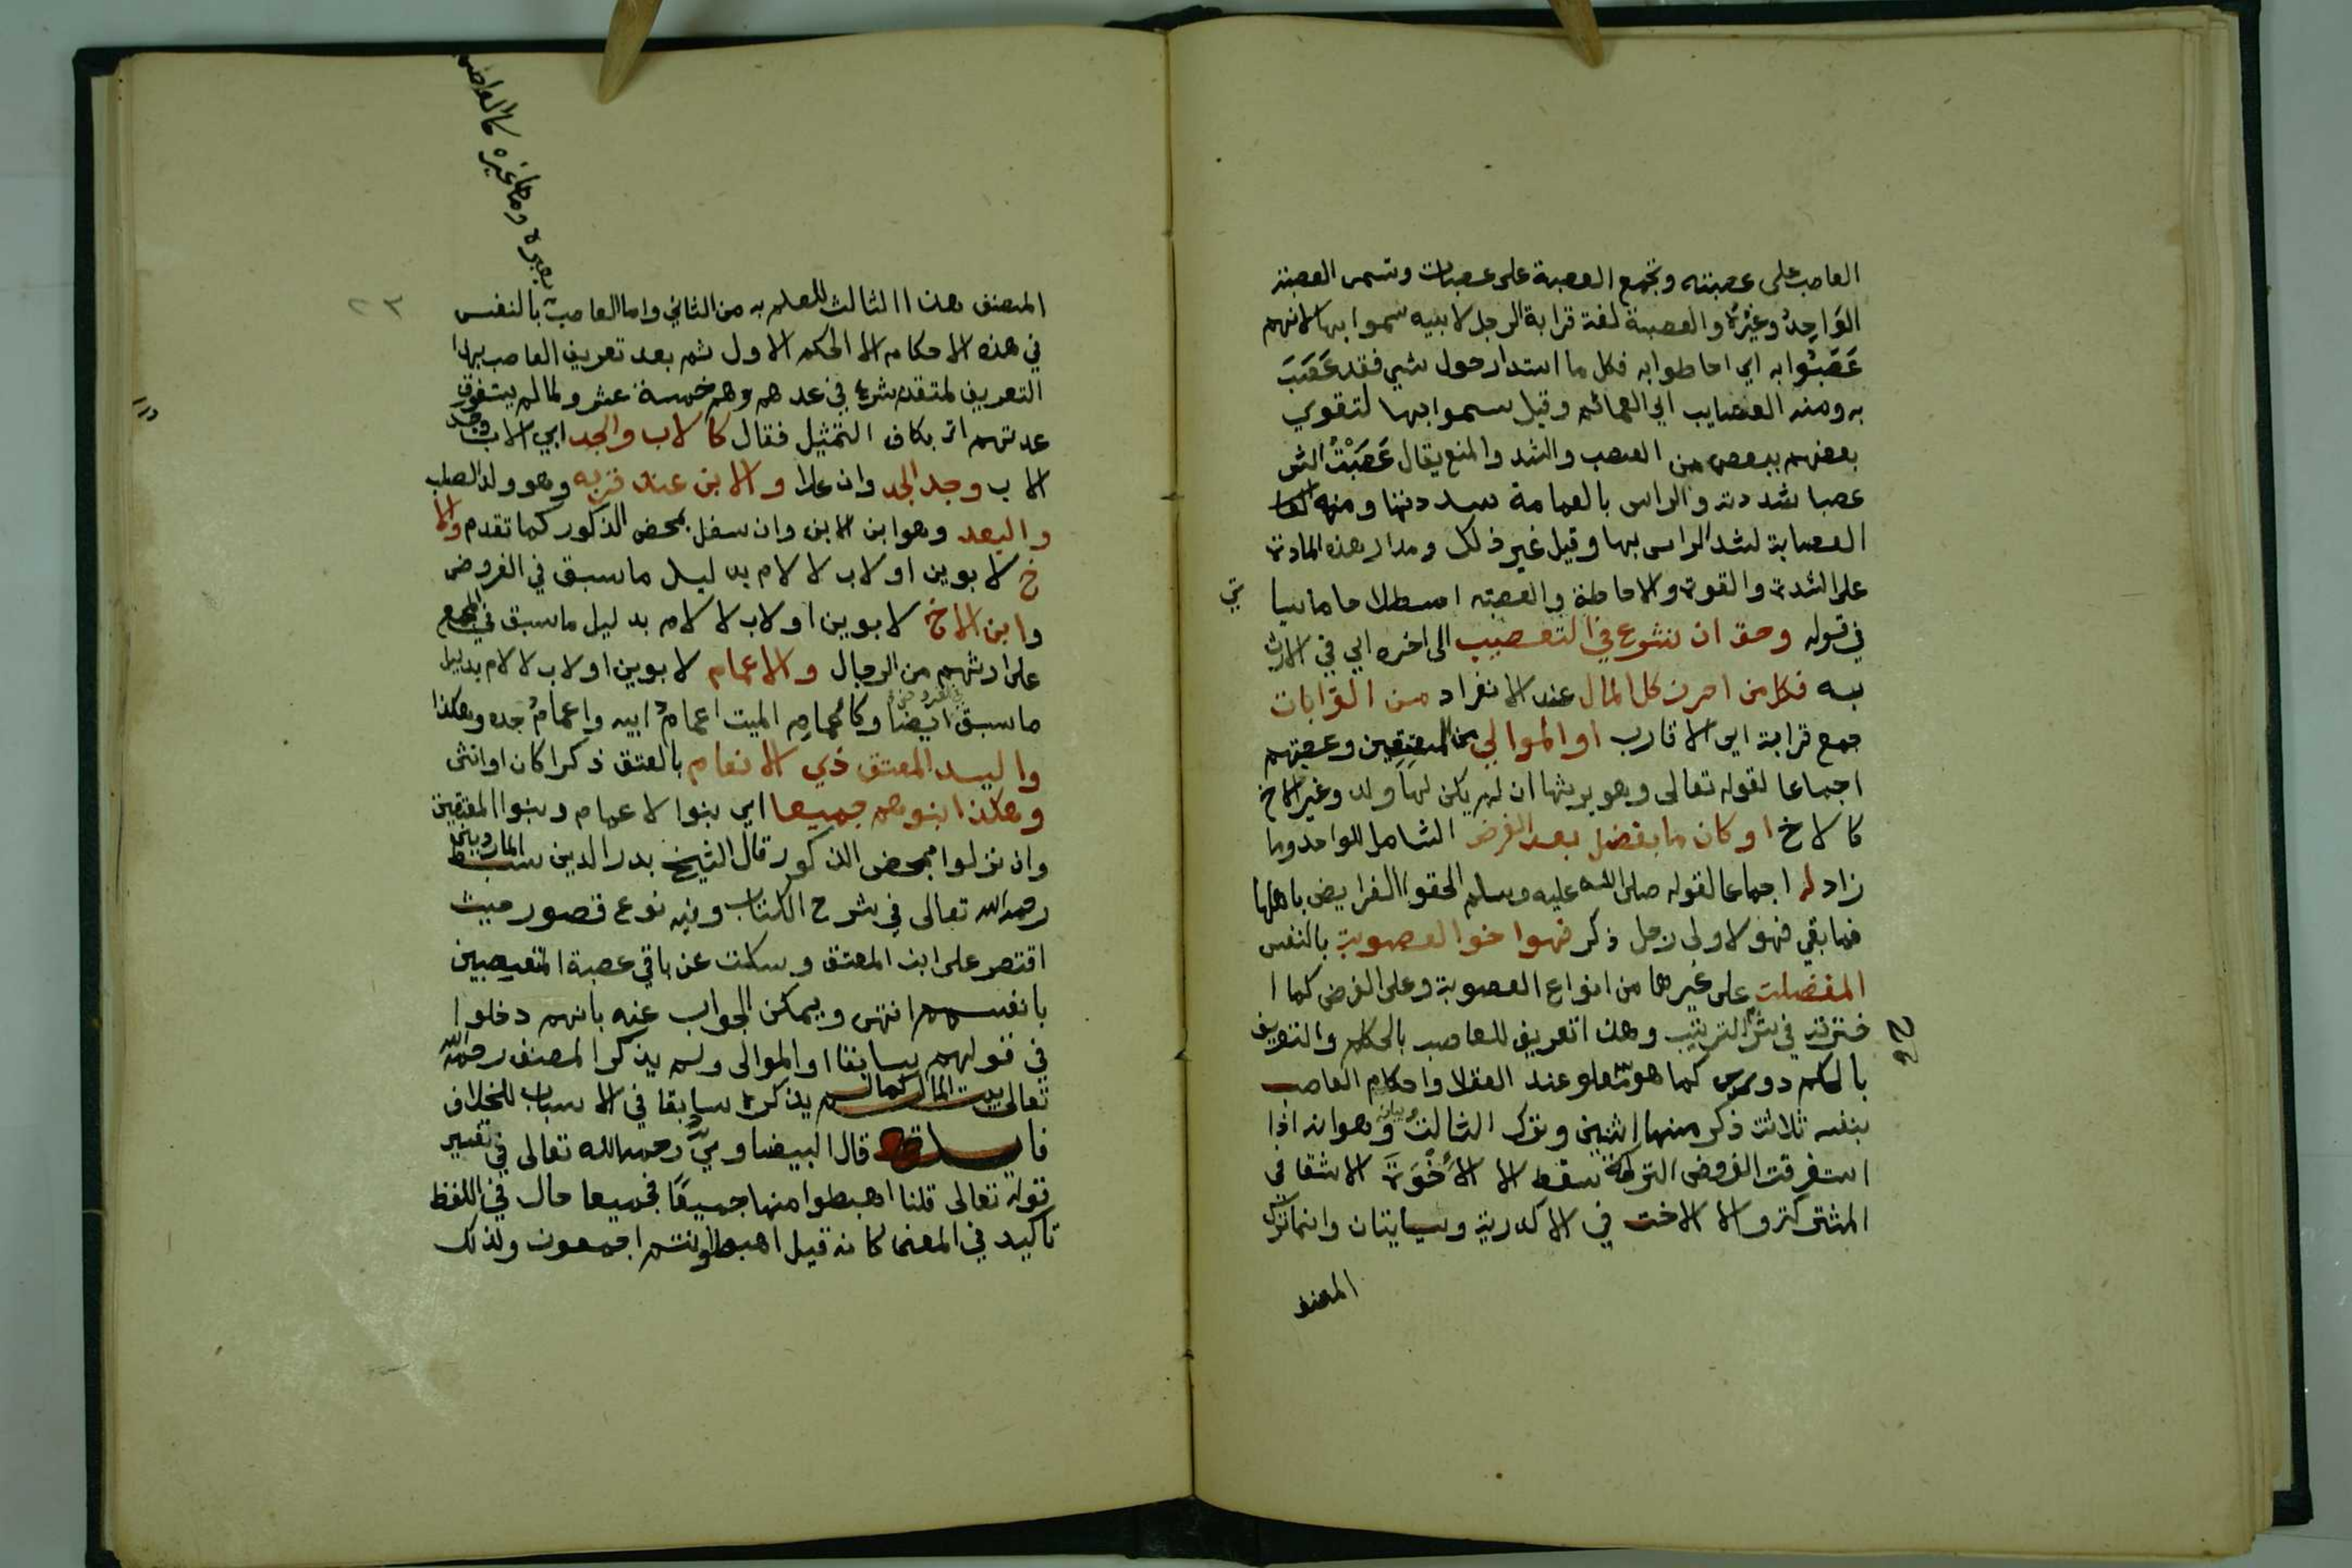 العاصب على عصبته وتجمع العصبة على عصبات وتسمى العصبة
الوَاحِدُ وغيْرُهُ والعصبة لغة قرابة الرجل لابيه سموا بها لانهم
عَصَبُوا به اي احاطوا به فكل ما استدار حول شيء فقد عَصَبَ
به ومنه العصايب اي العمائم وقيل سموا بها لتقوي
بعضهم ببعض من العصب والشد والمنع يقال عَصَبْتُ الشى
عصبا شددته والراس بالعمامة شددتها ومنه
العصابة لشد الراس بها وقيل غير ذلك ومدار هذه المادة
على الشدة والقوة والاحاطة والعصبة اصطلاحا ما سيا
تي
في قوله وحق ان نشرع في التعصيب الى اخره اي في الارث
به فكل من احرز كل المال عند الانفراد من القرابات
جمع قرابة اي الاقارب او الموالي من المعتِقِين وعصبتهم
اجماعا لقوله تعالى وهو يرثها ان لم يكن لها ولد وغير الاخ
كالاخ او كان ما يفضل بعد الفرض الشامل للواحد وما
زاد له اجماعا لقوله صلى الله عليه وسلم الحقوا الفرايض باهلها
فما بقي فهو لاولى رجل ذكر فهو اخو العصوبة بالنفس
المفضلت على غيرها من انواع العصوبة وعلى الفرض كما ا
خترته في شرح الترتيب وهذا تعريف للعاصب بالحكم والتعريف
بالحكم دوري كما هو عند العقلا واحكام العاصب
بنفسه ثلاثة ذكر منها اثنين وترك الثالث وبيانه وهو انه اذا
استغرقت الفروض التركة سقط الا الأخْوَة الاشقا في
المشتركة والا الاخت في الاكدرية وسياتيان وانما ترك
المصنف
بغيره ومع غيره كالعاصب
٢٣
المصنف هذا الثالث للعلم به من الثاني واما العاصب بالنفس
في هذه الاحكام الا الحكم الاول ثم بعد تعريف العاصب بهذا
التعريف لمتقدم شرع في عدهم وهم خمسة عشر ولما لم يستغرق
عدتهم اتى بكاف التمثيل فقال كالاب والجد ابي الاب وجد
الاب وجد الجد وان علا والابن عند قربه وهو ولد الصلب
والبعد وهو ابن الابن وان سفل بمحض الذكور كما تقدم والا
خ لابوين او لاب لا لام بدليل ما سبق في الفروض
وابن الاخ لابوين او لاب لا لام بدليل ما سبق في المجمع
على ارثهم من الرجال والاعمام لابوين او لاب لا لام بدليل
ما سبق بالفروض ايضا وكاعمام الميت اعمامُ ابيه واعمامُ جده وهكذا
والسيد المعتق ذي الانعام بالعتق ذكرا كان او انثى
وهكذا بنوهم جميعا اي بنوا الاعمام وبنوا المعتقين
وان نزلوا بمحض الذكور قال الشيخ بدر الدين سبط المارديني
رحمه الله تعالى في شرح الكتاب وفيه نوع قصور حيث
اقتصر على ابن المعتق وسكت عن باقي عصبة المتعصبين
بانفسهم انتهى ويمكن الجواب عنه بانهم دخلوا
في قولهم سابقا او الموالى ولم يذكر المصنف رحمه الله
تعالى بيت المال كما لم يذكره سابقا في الاسباب للخلاف
فايدة قال البيضاوي رحمه الله تعالى في تفسير
قوله تعالى قلنا اهبطوا منها جميعًا فجميعا حال في اللفظ
تاكيد في المعنى كانه قيل اهبطوا انتم اجمعون ولذلك